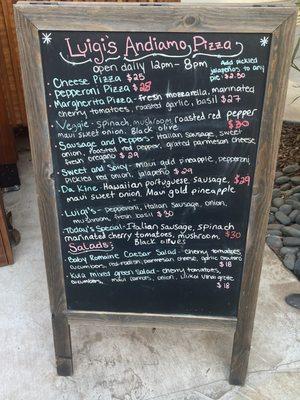 Luigi's Andiamo Pizza
open daily 12pm - 8pm
Add pickled
jalapeño to any
pie $2.50
Cheese Pizza $25
Pepperoni Pizza $28
Margherita Pizza - fresh mozzarella, marinated
cherry tomatoes, roasted garlic, basil $27
Veggie - spinach, mushroom, roasted red pepper
maui sweet onion, Black olive $30
Sausage and Peppers - italian sausage, sweet
onion, roasted red pepper, grated parmesean cheese
fresh oregano $29
Sweet and Spicy - maui gold pineapple, pepperoni,
pickled red onion, jalapeño $29
Da Kine - Hawaiian portuguese sausage,
maui sweet onion, Maui gold pineapple $29
Luigi's - Pepperoni, Italian Sausage, onion,
mushroom, fresh basil $30
Today's Special - Italian sausage, spinach
marinated cherry tomatoes, mushroom, $30
Black olives
Salads:
Baby Romaine Caesar Salad - cherry tomatoes,
cucumbers, red radish, parmesean cheese, garlic croutons
$18
Kula mixed green salad - cherry tomatoes,
cucumbers, maui carrots, onion,
$18